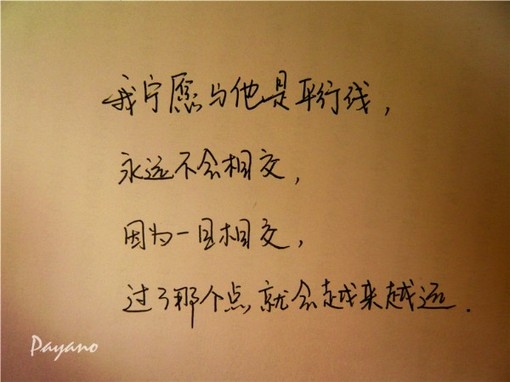 我宁愿与他是平行线，
永远不会相交，
因为一旦相交，
过了那个点就会越来越远．
Payano